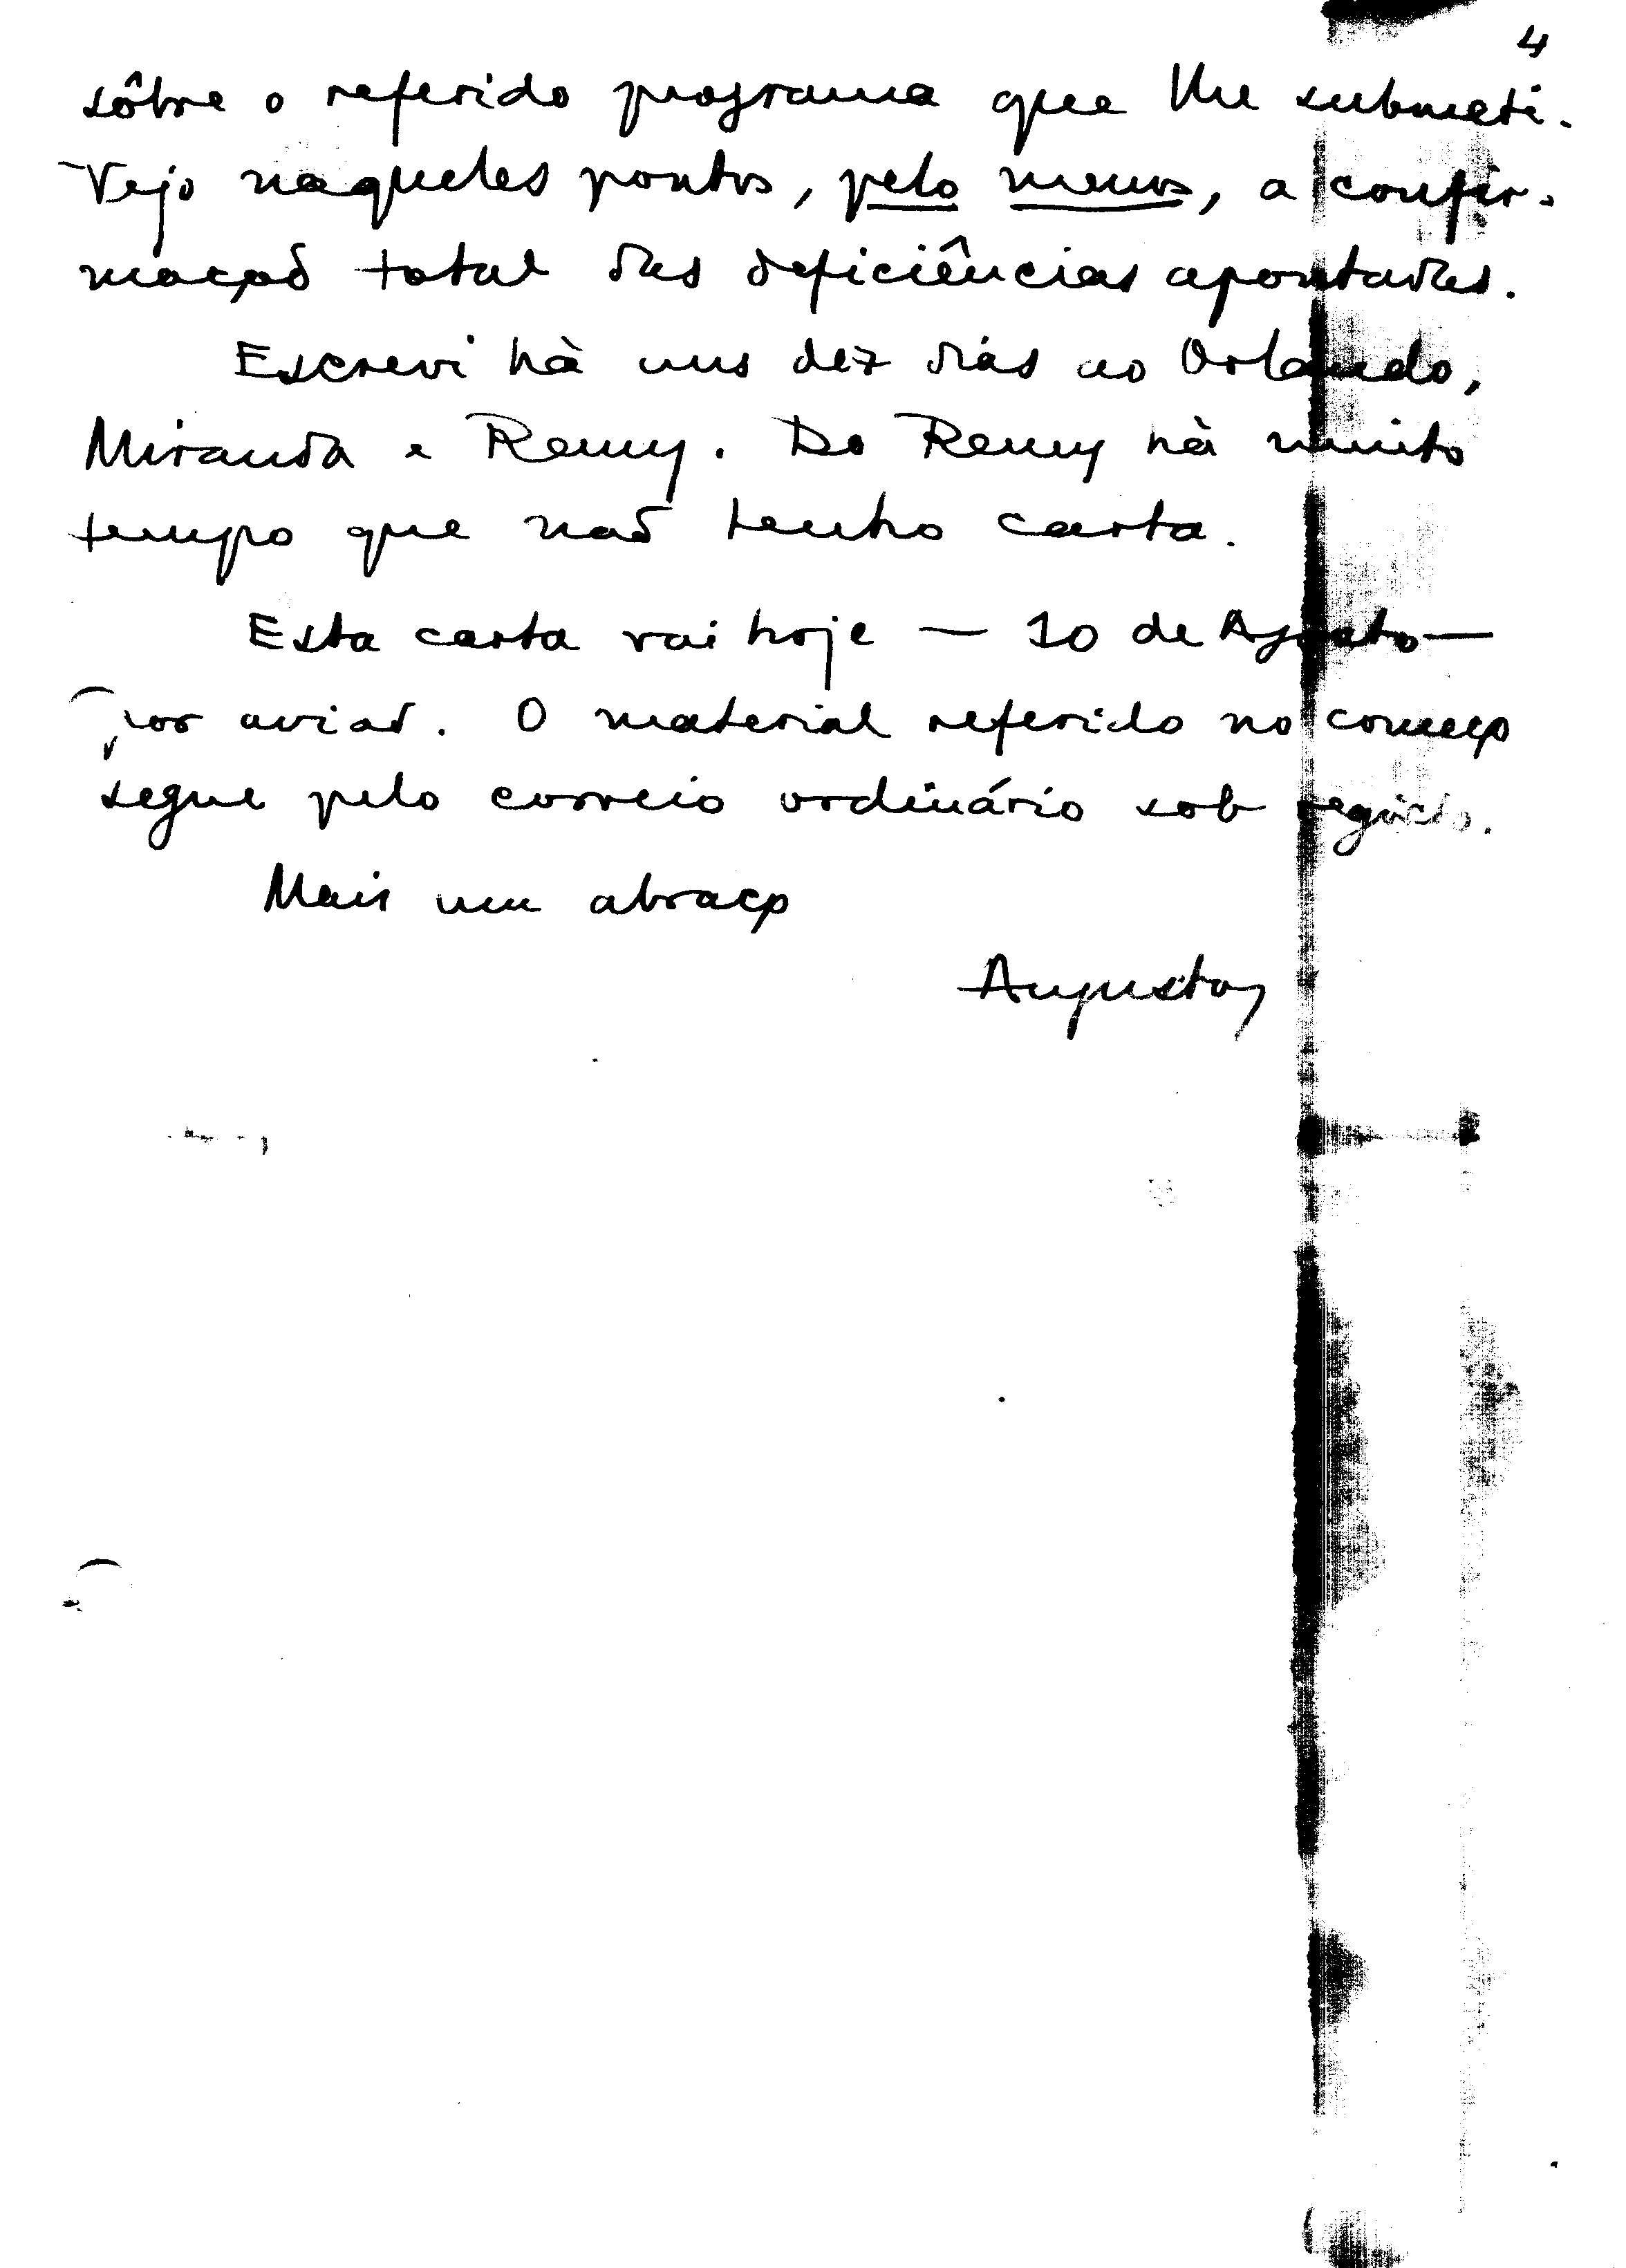 4
sôbre o referido programa que lhe submeti.
Vejo naqueles pontos, pelo menos, a confir-
mação total das deficiências apontadas.
Escrevi hà uns dez dias ao Orlando,
Miranda e Remy. Do Remy hà muito
tempo que não tenho carta.
Esta carta vai hoje — 10 de Agosto —
por avião. O material referido no começo
segue pelo correio ordinário sob registo.
Mais um abraço
Augusto